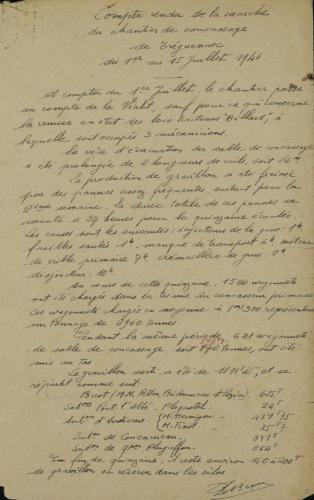 Compte-rendu de la marche
du chantier de concassage
de Tréguennec
du 1er au 15 Juillet 1946
A compter du 1er Juillet, le chantier passe
au compte de la
sauf pour ce qui concerne
la remise en état des locotracteurs "Billard", à
laquelle sont occupés 3 mécaniciens.
La voie d'évacuation du sable de concassage
a été prolongée de 2 longueurs de voie, soit
La production de gravillon a été freinée
par des pannes assez fréquentes, surtout pour la
2ème semaine. La durée totale de ces pannes se
monte à 29 heures pour la quinzaine écoulée.
Les causes sont les suivantes : injecteurs de la grue : 1h
fusibles sautés 1h, manque de transport 6h, moteur
de crible primaire 7h, crémaillère de grue,
disjoncteur : 10h
Au cours de cette quinzaine, 1500 wagonnets
ont été chargés dans la trémie du concasseur primaire
ces wagonnets chargés en moyenne à 1m3300 représentent
un tonnage de 2900 tonnes
Pendant la même période, 621 wagonnets
de sable de concassage soit tonnes, ont été
mis en tas
Le gravillon sorti a été de 1191T45, et se
répartit comme suit :
Brest
Subon Pont l'Abbé - Plogastel 26T
Subon d'Audierne
Subon de Concarneau
Subon de
En fin de quinzaine, il reste environ 150 à 200T
de gravillon en réserve dans les silos